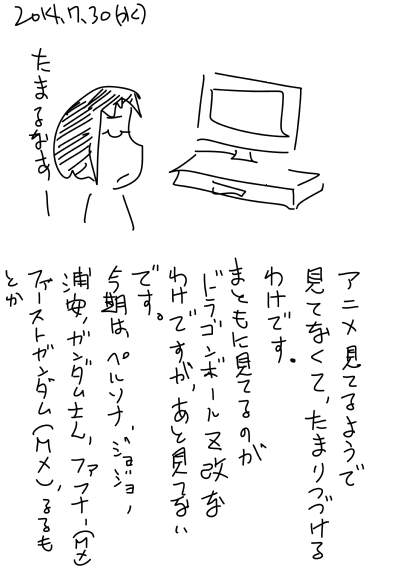 2014.7.30(水)
たまるなすー
アニメ見てるようで
見てなくて、たまりつづける
わけです。
まともに見てるのが
ドラゴンボールZ改な
わけですが、あと見てない
です。
今期は、ペルソナ、ジョジョ、
浦安、ガンダムさん、ファフナー(MX)
ファーストガンダム(MX)、るるも
とか